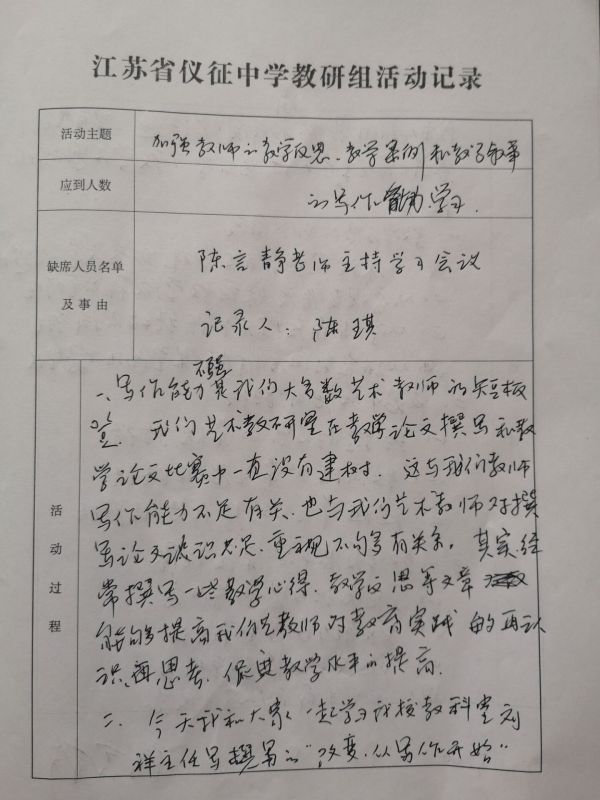 江苏省仪征中学教研组活动记录
活动主题
加强教师的教学反思、教学案例和教学叙事
应到人数
的写作能力学习.
缺席人员名单
及事由
陈言静老师主持学习会议
记录人：陈琪
活动过程
不强
一、写作能力是我们大多数艺术教师的短板
我们艺术教研室在教学论文撰写和教
学论文比赛中一直没有建树. 这与我们教师
写作能力不足有关.也与我们艺术教师对撰
写论文认识不足、重视不够有关系。其实经
常撰写一些教学心得、教学反思等文章
能够提高我们教师对教育实践的再认
识、再思考、促进教学水平的提高.
二、今天我和大家一起学习我校教科室刘
祥主任写撰写的“改变,从写作开始”